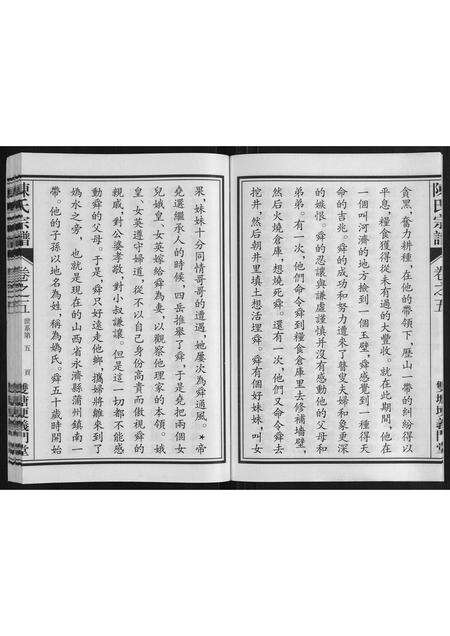 陳氏宗譜
卷之五
雙塘陳義門堂
貪黑，奮力耕種，在他的帶領下，歷山一帶的糾紛得以
平息，糧食獲得從未有過的大豐收。就在此期間，他在
一個叫河濟的地方撿到一個玉璧，舜感覺到一種得天
命的吉兆。舜的成功和努力遭來了瞽叟夫婦和象更深
的嫉恨。舜的忍讓與謙虛謹慎并沒有感動他的父母和
弟弟。有一次，他們命令舜到糧食倉庫里去修補墻壁，
然后火燒倉庫，想燒死舜。還有一次，他們又命令舜去
挖井，然后朝井里填土想活埋舜。舜有個好妹妹，叫女
果，妹妹十分同情哥哥的遭遇，她屢次為舜通風。★帝
堯選繼承人的時候，四岳推舉了舜，于是堯把兩個女
兒娥皇、女英嫁給舜為妻，以觀察他理家的本領。娥
皇、女英遵守婦道，從不以自己身份高貴而傲視舜的
親戚，對公婆孝敬，對小叔謙讓。但是這一切都不能感
動舜的父母。于是，舜只好遠走他鄉，攜婦將雛來到了
媯水之旁，也就是現在的山西省永濟縣蒲州鎮南一
帶。他的子孫以地名為姓，稱為媯氏。舜五十歲時開始
陳氏宗譜
卷之五
世系第 五 頁
雙塘陳義門堂